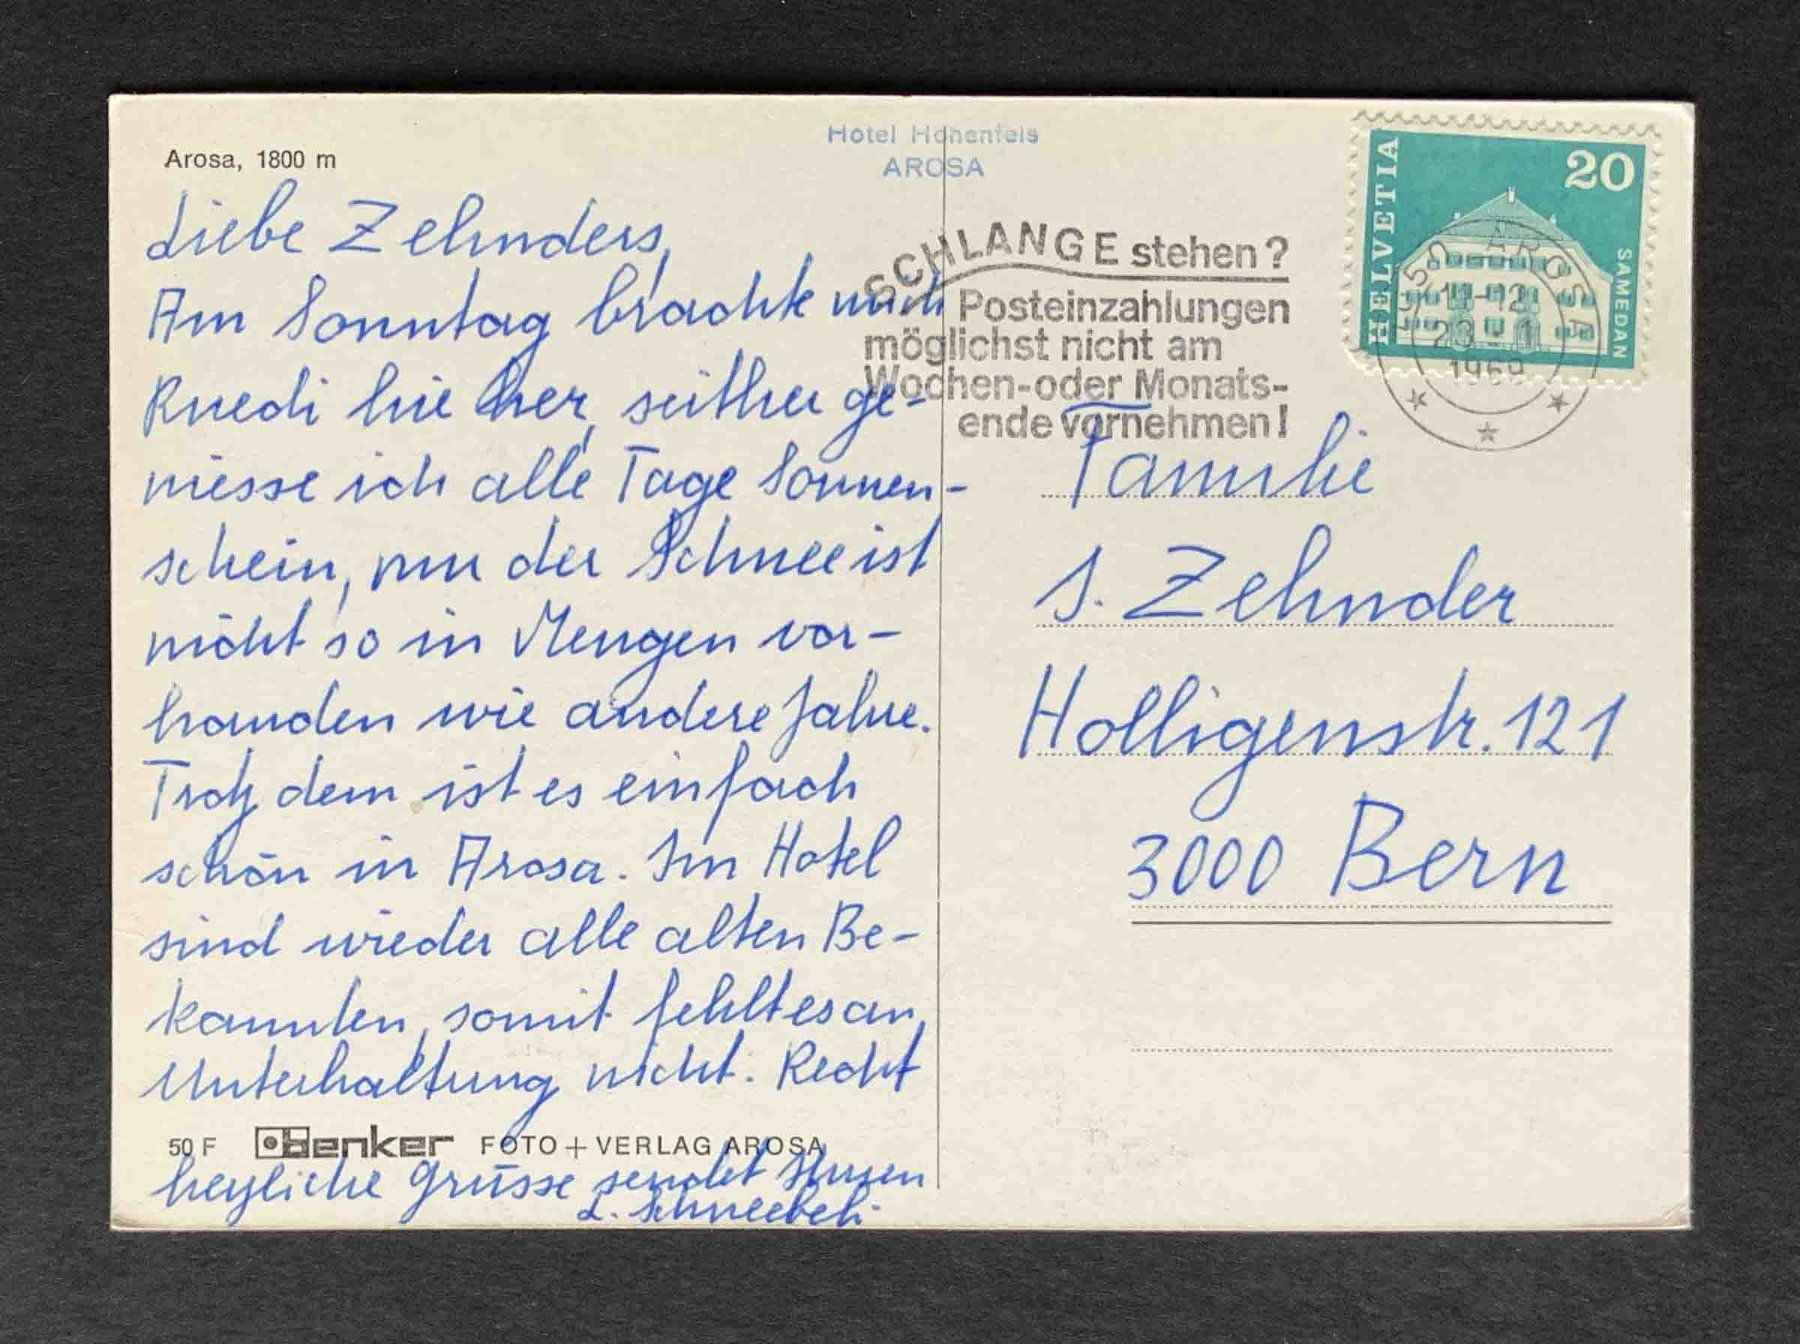 Arosa, 1800 m
Liebe Zehnders,
Am Sonntag brachte mich
Ruedi hie her, seither ge-
niesse ich alle Tage Sonnen-
schein, nur der Schnee ist
nicht so in Mengen vor-
handen wie andere Jahre.
Trotz dem ist es einfach
schön in Arosa. Im Hotel
sind wieder alle alten Be-
kannten, somit fehlt es an
Unterhaltung nicht. Recht
herzliche Grüsse sendet Ihnen
L. Schneebeli
50 F Benker FOTO + VERLAG AROSA
Hotel Hohenfels
AROSA
SCHLANGE stehen?
Posteinzahlungen
möglichst nicht am
Wochen-oder Monats-
ende vornehmen!
HELVETIA
20
SAMEDAN
7050 AROSA
11-12
23 -1
1969
Familie
S. Zehnder
Holligenstr. 121
3000 Bern